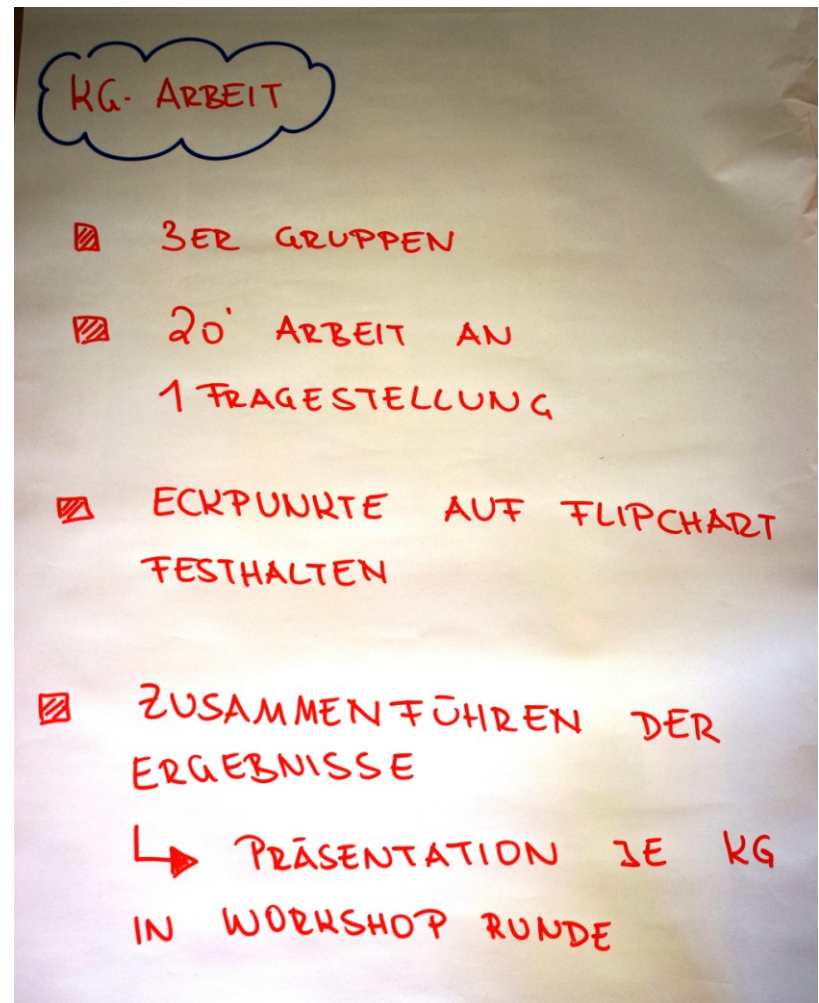 KG-ARBEIT
3ER GRUPPEN
20' ARBEIT AN
1 FRAGESTELLUNG
ECKPUNKTE AUF FLIPCHART
FESTHALTEN
ZUSAMMENFÜHREN DER
ERGEBNISSE
PRÄSENTATION JE KG
IN WORKSHOP RUNDE